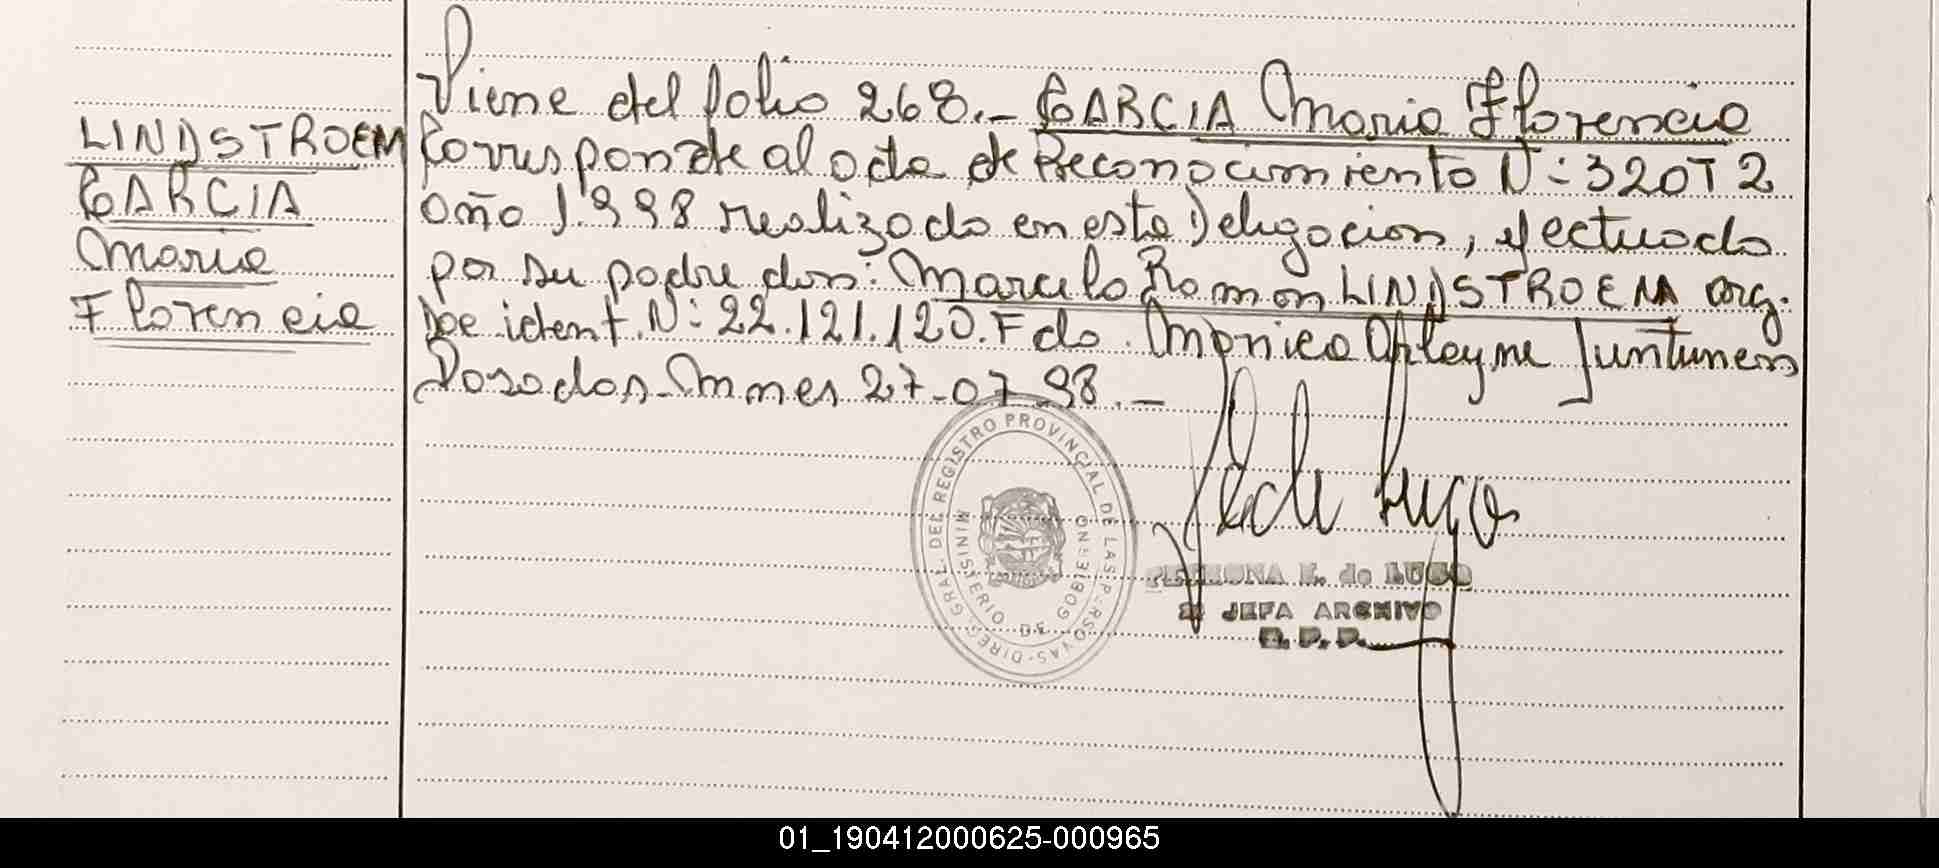 LINDSTROEM
GARCIA
Maria
Florencia
Viene del folio 268.- GARCIA Maria Florencia
Corresponde al acta de Reconocimiento N: 320 T 2
año 1.998 realizado en esta Delegacion, efectuado
por su padre don: Marcelo Ramon LINDSTROEM arg.
Doc ident. N: 22.121.120. Fdo. Monica Juntunen
Posadas- Mnes 27-07-98.-
DIREC. GRAL. DEL REGISTRO PROVINCIAL DE LAS PERSONAS
MINISTERIO DE GOBIERNO
de Lugo
PETRONA K. de LUGO
JEFA ARCHIVO
R. P. P.
01_190412000625-000965